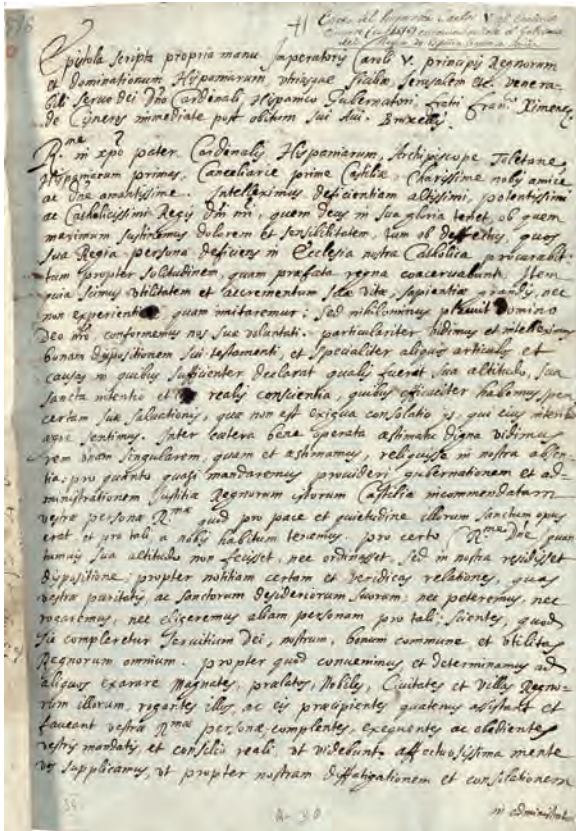 Copia del Emperador Carlos V al Cardenal
Cisneros
Epistola scripta propria manu Imperatoris Caroli V. principis Regnorum
et Dominationum Hispaniarum utriusque Siciliæ Jerusalem etc. venera-
bili servo dei Dño Cardenali, Hispanico Gubernatori, fratri Fran.co Ximenez
de Cisneros immediate post obitum sui Avi. Bruxellis.
R.me in xpo pater, Cardenalis Hispaniarum, Archipiscope Toletane,
Hispaniarum primas, Cancellarie prime Castiliæ, Charissime nobis amice
ac Dñe amantissime. Intelleximus deficientiam altissimi, potentissimi
ac Catholicissimi Regis Dñi nri, quem deus in sua gloria tenet, ob quem
maximum sustinemus dolorem et sensibilitatem, tum ob defectus, quos
sua Regia persona deficiens in Ecclesia nostra Catholica procurabit:
tum propter solitudinem, quam præfata regna coacervabunt. Item
quia scimus utilitatem et accrementum suæ vitæ, sapientiæ grandis, nec
non experientiæ quam imitaremur: sed nihilominus placuit Domino
Deo nro, conformemus nos suæ voluntati. particulariter vidimus et intelleximus
bonam dispositionem sui testamenti, et specialiter aliquos articulos et
causas in quibus sufficienter declarat qualis fuerat sua altitudo, sua
sancta intentio et realis conscientia, quibus efficaciter habemus spem
certam suæ salvationis, quæ non est exigua consolatio is, qui eius interitum
ægre sentimus. Inter cætera bene operata æstimatu digna vidimus
rem unam singularem, quam et æstimamus, reliquisse in nostra absen-
tia: pro quanto quasi mandaremus provideri gubernationem et ad-
ministrationem Justitiæ Regnorum istorum Castellæ incommendatam
vestræ personæ R.mæ quod pro pace et quietudine illorum sanctum opus
erat et pro tali a nobis habitum tenemus. pro certo R.me Dñe quan-
tumvis sua altitudo non fecisset, nec ordinasset, sed in nostra resedisset
dispositione; propter notitiam certam et veridicas relationes, quas
vestræ puritatis, ac sanctorum desideriorum suorum: nec peteremus, nec
rogaremus, nec eligeremus aliam personam pro tali: scientes, quod
sic compleretur servitium Dei, nostrum, bonum commune, et utilitas
Regnorum omnium. propter quod convenimus et determinamus ad
aliquos exarare Magnates, prælatos, Nobiles, Civitates et Villas Regno-
rum illorum, rogantes illos, ac eis præcipientes quatenus assistant et
faveant vestræ R.mæ personæ, complentes, exequentes ac obedientes
vestris mandatis, et consilio reali ut videbunt. affectuosissima mente
vos supplicamus, ut propter nostram diffatigationem et consolationem
in administra
A-30